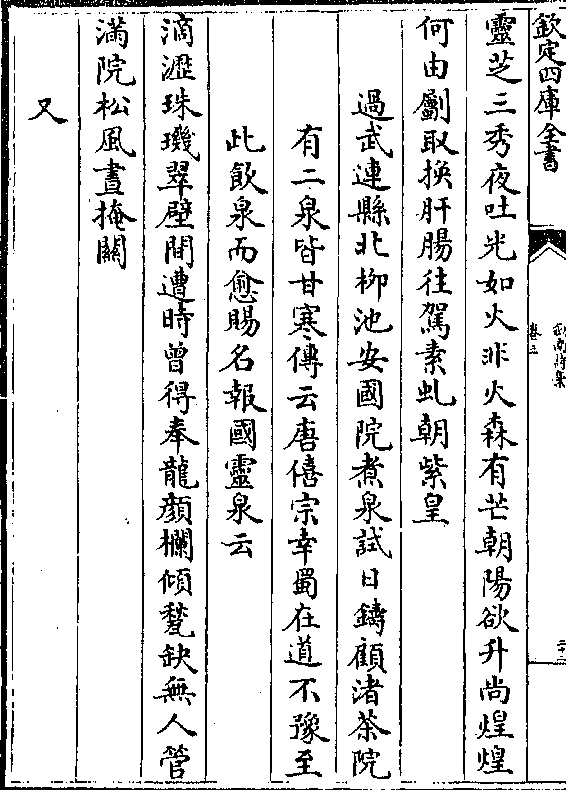 欽定四庫全書
劍南詩集
卷三
二十三
靈芝三秀夜吐光如火非火森有芒朝陽欲升尚煌煌
何由劚取換肝腸往駕素虬朝紫皇
過武連縣北柳池安國院煮泉試日鑄顧渚茶院
有二泉皆甘寒傳云唐僖宗幸蜀在道不豫至
此飲泉而愈賜名報國靈泉云
滴瀝珠璣翠壁間遭時曾得奉龍顏欄傾甃缺無人管
滿院松風晝掩關
又